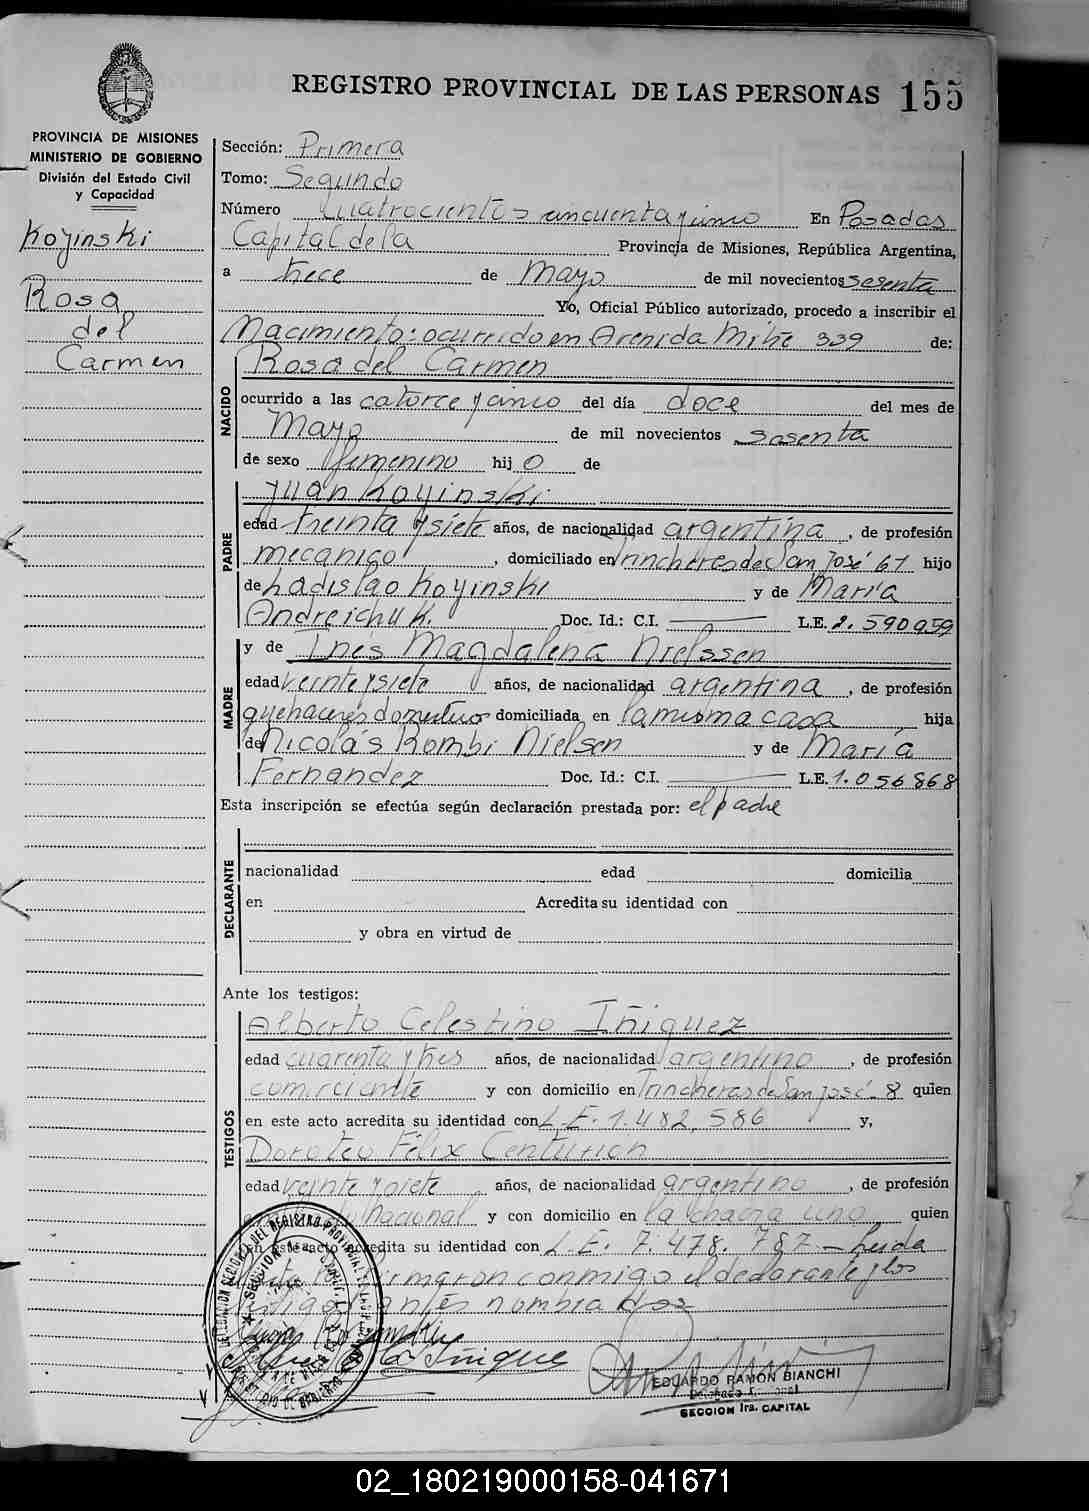 REGISTRO PROVINCIAL DE LAS PERSONAS 155
PROVINCIA DE MISIONES
MINISTERIO DE GOBIERNO
División del Estado Civil
y Capacidad
Koyinski
Rosa
del
Carmen
Sección: Primera
Tomo: Segundo
Número Cuatrocientos cincuenta y cinco En Posadas
Capital de la Provincia de Misiones, República Argentina,
a trece de Mayo de mil novecientos sesenta
Yo, Oficial Público autorizado, procedo a inscribir el
Nacimiento: ocurrido en Avenida Mitre 339 de:
NACIDO
Rosa del Carmen
ocurrido a las catorce y cinco del día doce del mes de
Mayo de mil novecientos sesenta
de sexo femenino hij o de
PADRE
Juan Koyinski
edad treinta y siete años, de nacionalidad argentina, de profesión
mecanico, domiciliado en Trincheras de San José 61 hijo
de Ladislao Koyinski y de María
Andreichuk. Doc. Id.: C.I. L.E. 2.590959
MADRE
y de Inés Magdalena Nielssen
edad veinte y siete años, de nacionalidad argentina, de profesión
quehaceres domesticos domiciliada en la misma casa hija
de Nicolás Rombi Nielsen y de María
Fernandez Doc. Id.: C.I. L.E. 1.056868
Esta inscripción se efectúa según declaración prestada por: el padre
DECLARANTE
nacionalidad edad domicilia
en Acredita su identidad con
y obra en virtud de
Ante los testigos:
TESTIGOS
Alberto Celestino Iñiguez
edad cuarenta y tres años, de nacionalidad argentino, de profesión
comerciante y con domicilio en Trincheras de San José 8 quien
en este acto acredita su identidad con L.E. 1.482.586 y,
Doroteo Félix Centurión
edad veinte y siete años, de nacionalidad argentino, de profesión
nacional y con domicilio en la chacra uno quien
en este acto acredita su identidad con L.E. 7.478.787 - Leida
firmaron conmigo el declarante y los
testigos antes nombrados
EDUARDO RAMON BIANCHI
SECCION 1ra. CAPITAL
02_180219000158-041671